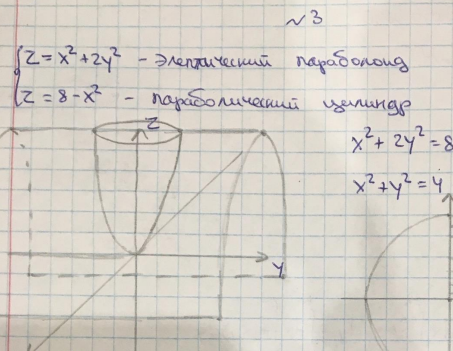 №3
{ z = x² + 2y² – элептический параболоид
z = 8 - x² – параболический цилиндр
z
x² + 2y² = 8
x² + y² = 4
y